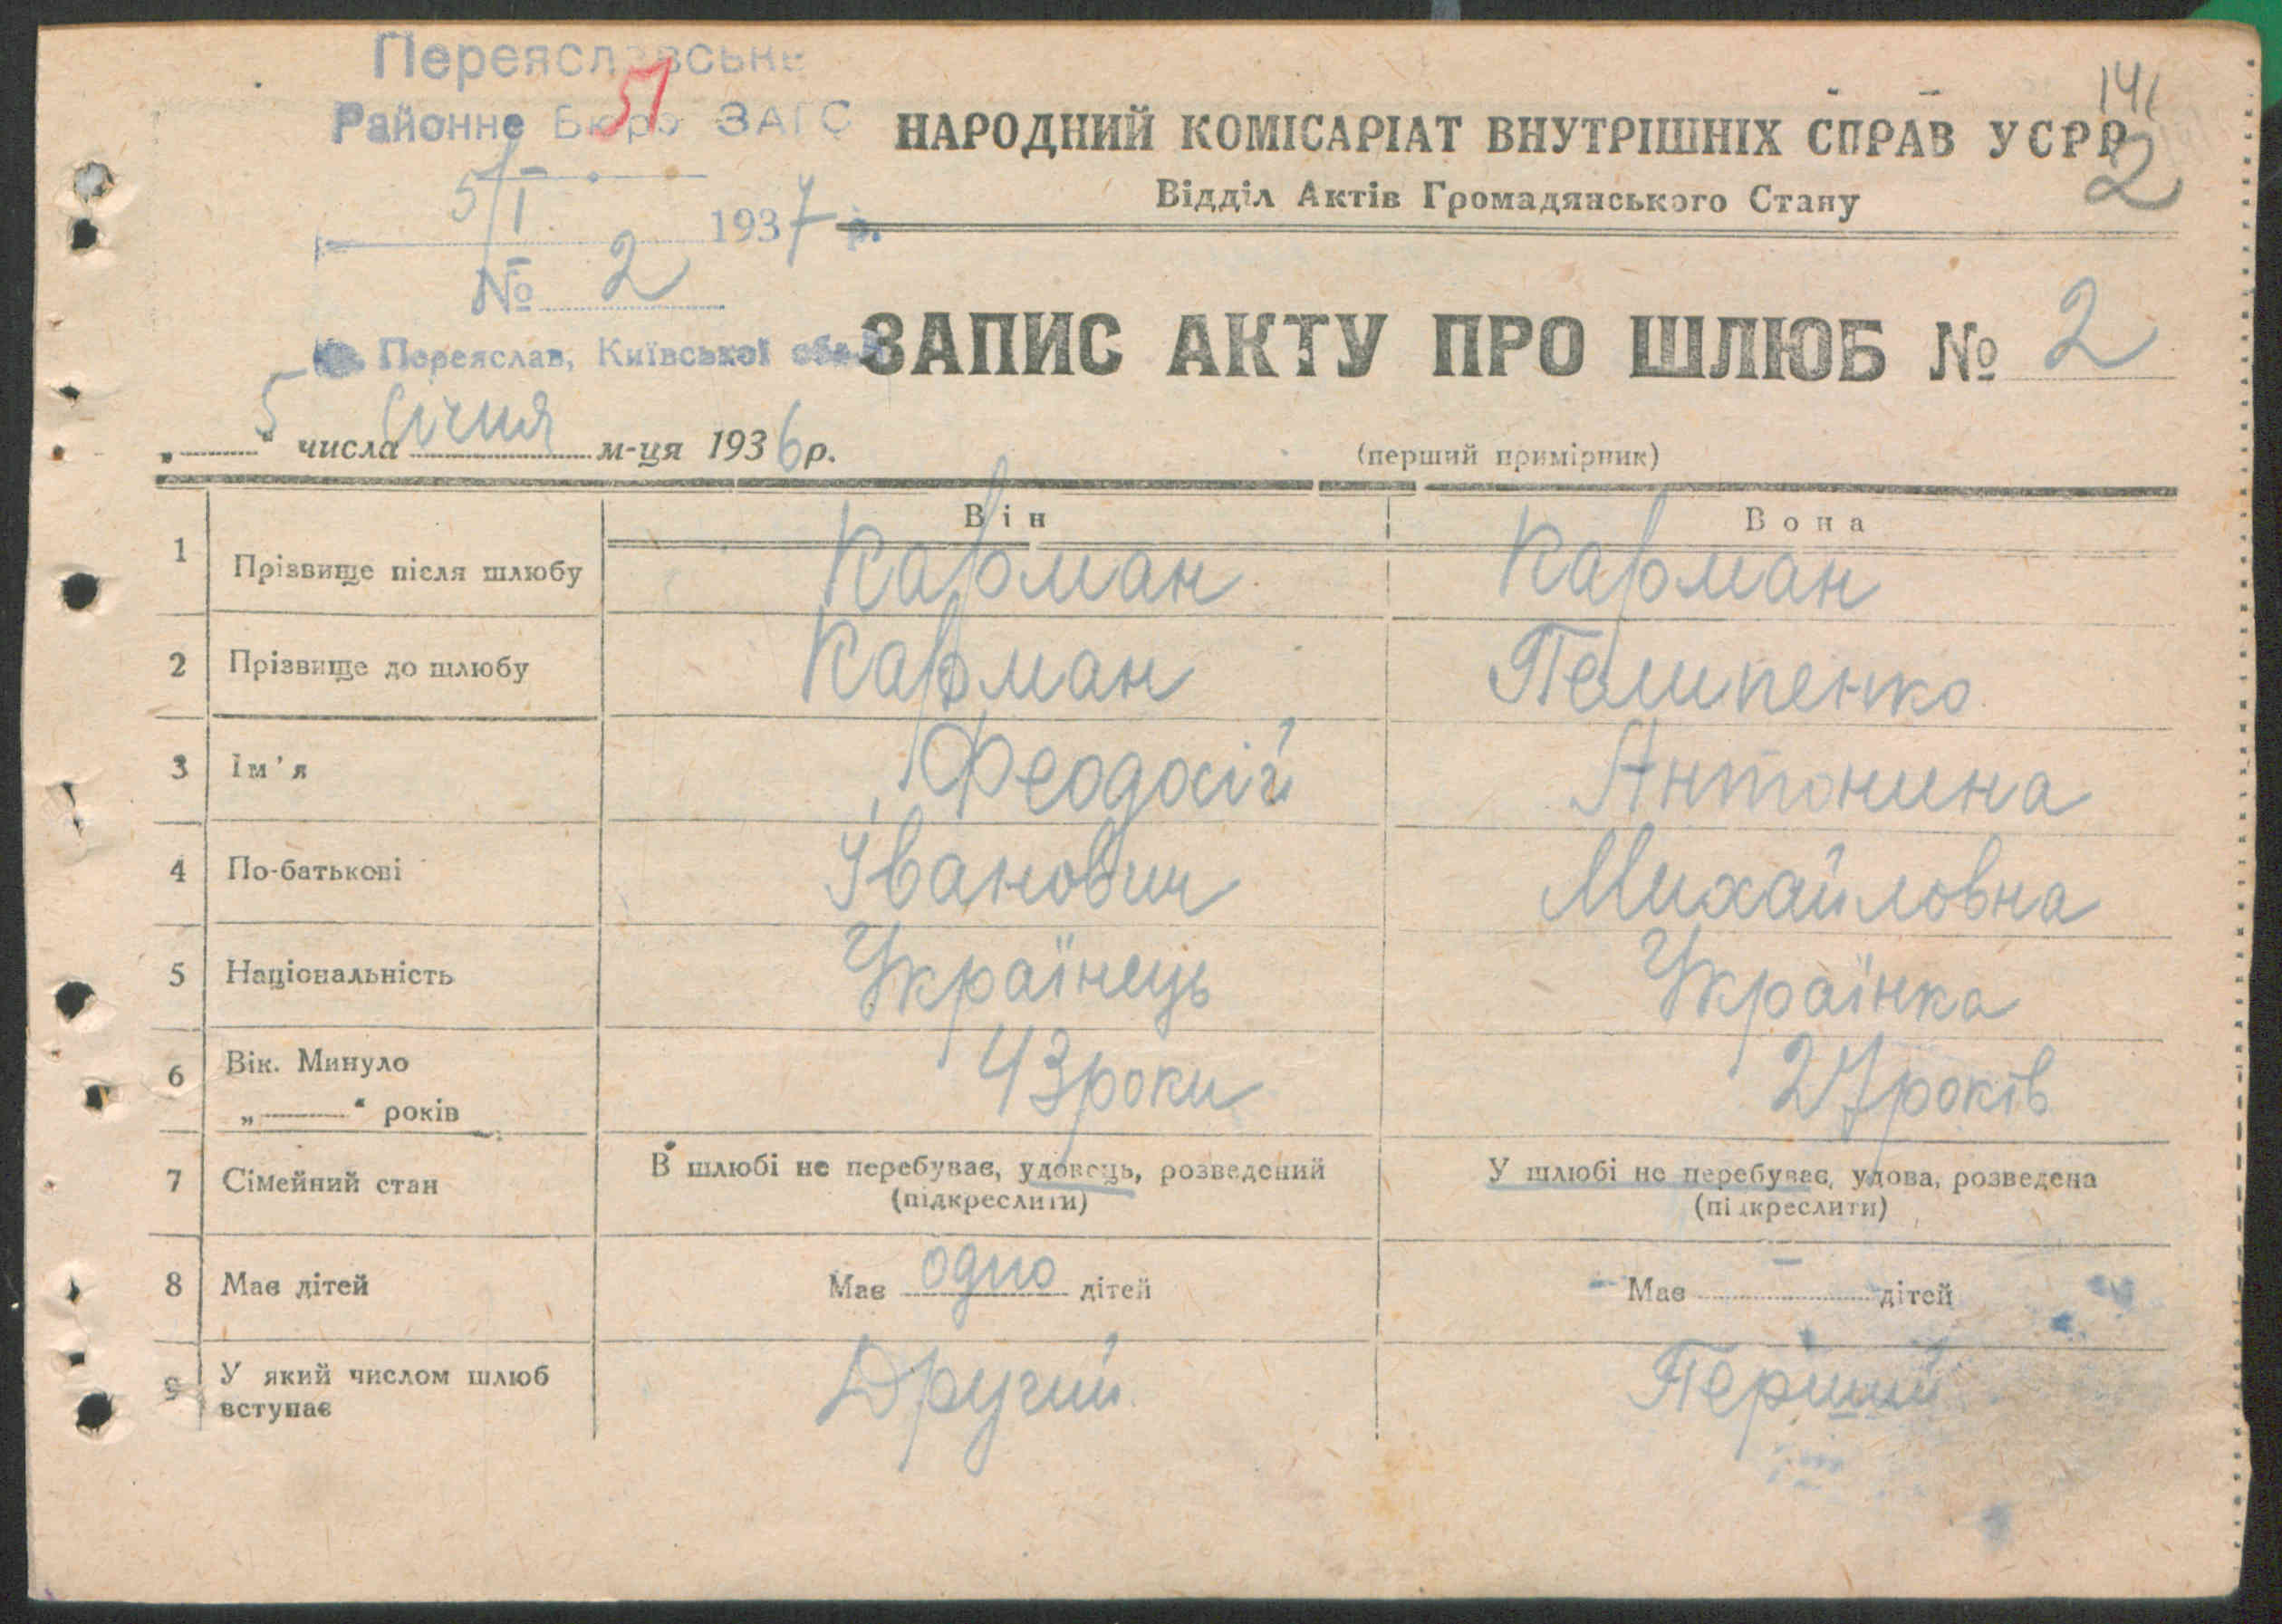 Переяславське
51
141
Районне Бюро ЗАГС
НАРОДНИЙ КОМІСАРІАТ ВНУТРІШНІХ СПРАВ УСРР
2
Відділ Актів Громадянського Стану
5/I 1937 р.
№ 2
м. Переяслав, Київської обл.
ЗАПИС АКТУ ПРО ШЛЮБ № 2
„5“ числа Січня м-ця 1936 р.
(перший примірник)
Він Вона
1 Прізвище після шлюбу Карман Карман
2 Прізвище до шлюбу Карман Пелипенко
3 Ім'я Феодосій Антонина
4 По-батькові Іванович Михайловна
5 Національність Українець Українка
6 Вік. Минуло 43 роки 27 років
„ “ років
7 Сімейний стан В шлюбі не перебуває, удовець, розведений У шлюбі не перебуває, удова, розведена
(підкреслити) (підкреслити)
8 Має дітей Має одно дітей Має – дітей
9 У який числом шлюб Другий Перший
вступає